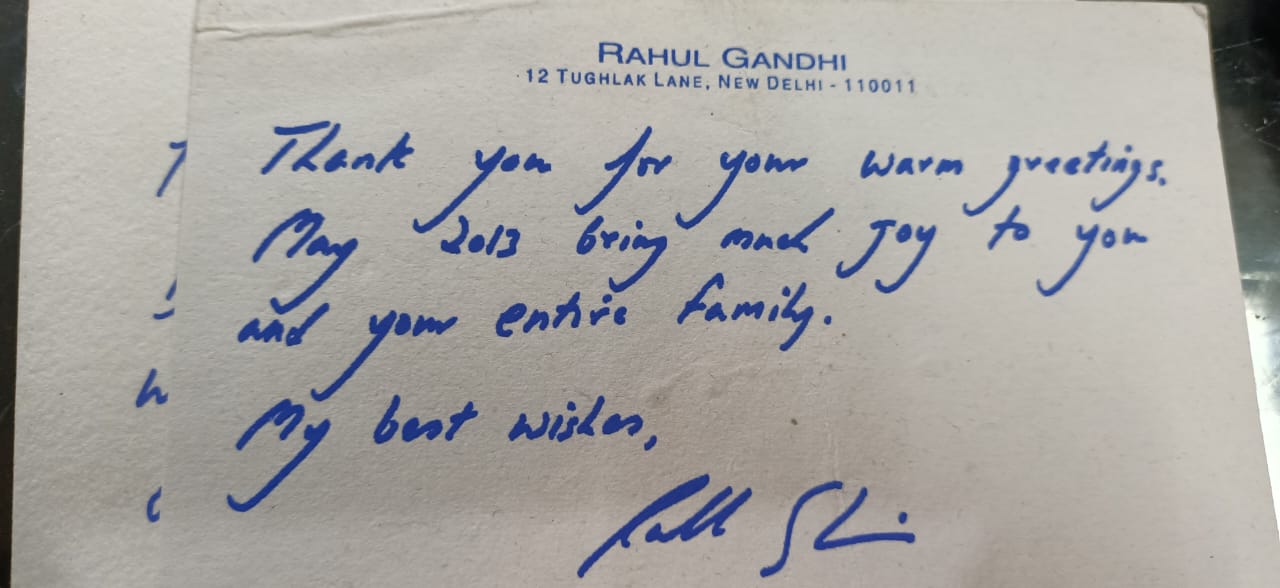 RAHUL GANDHI
12 TUGHLAK LANE, NEW DELHI - 110011
Thank you for your warm greetings.
May 2013 bring much joy to you
and your entire family.
My best wishes,